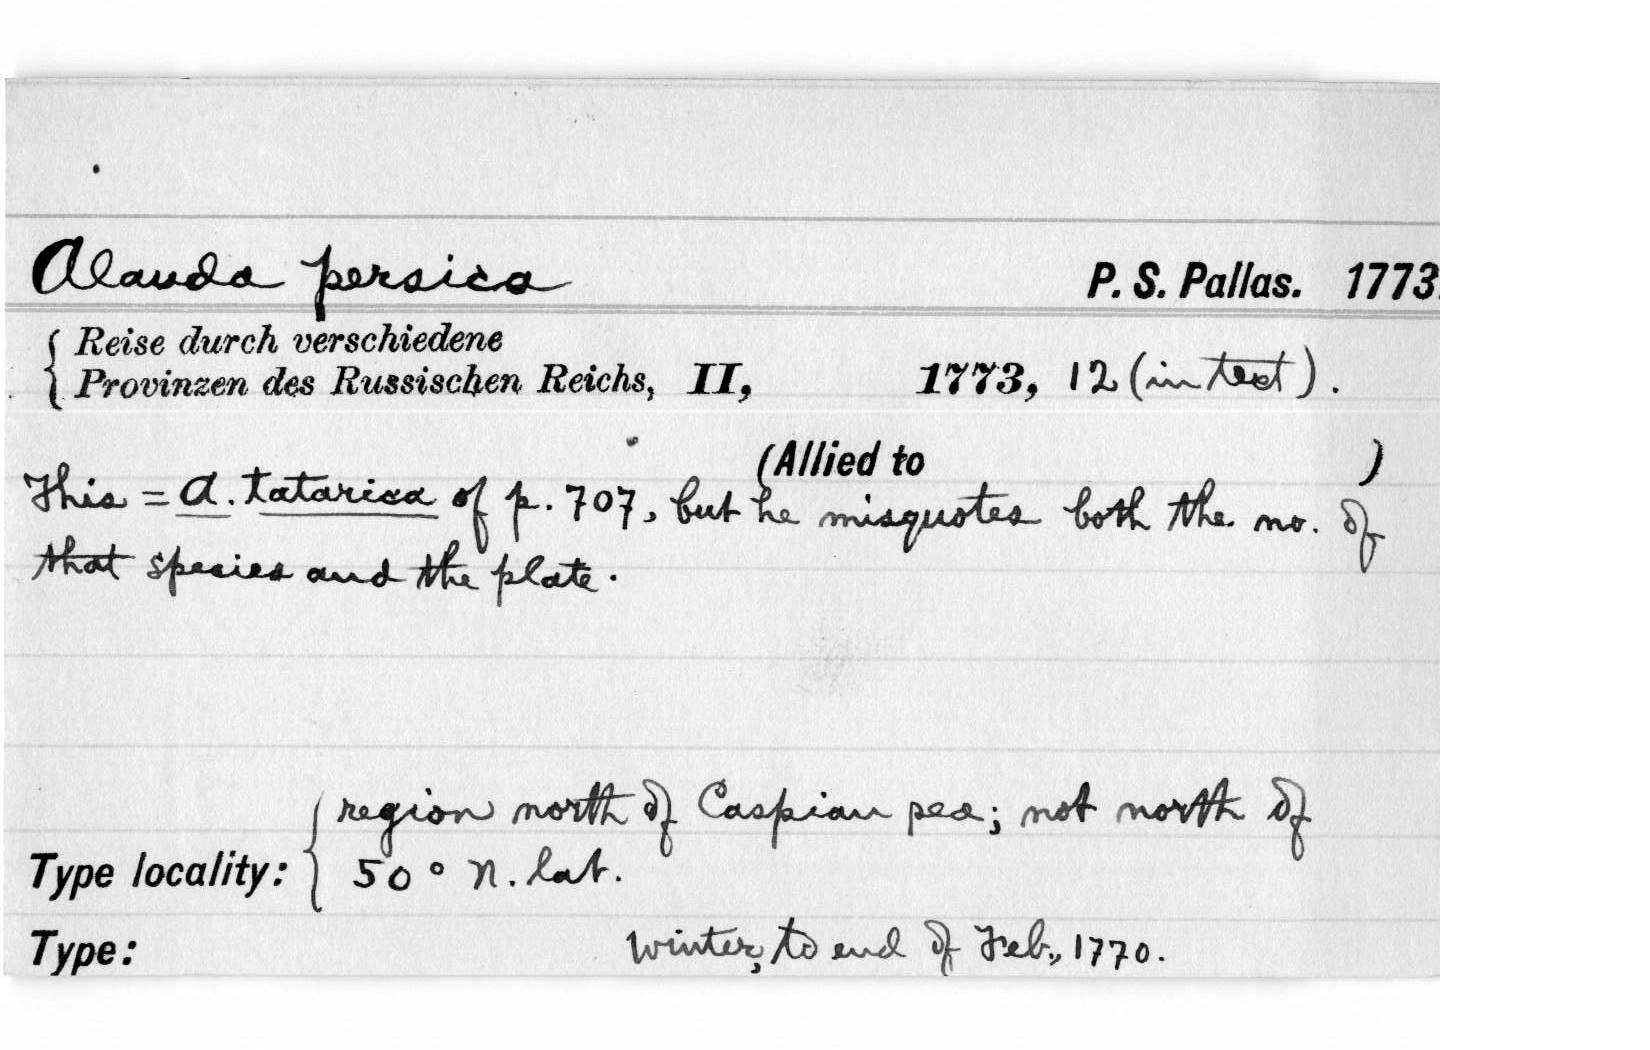 Alauda persica P. S. Pallas. 1773.
{ Reise durch verschiedene
Provinzen des Russischen Reichs, II, 1773, 12 (in text).
(Allied to )
This = A. tatarica of p. 707, but he misquotes both the no. of
that species and the plate.
region north of Caspian sea; not north of
Type locality: { 50° N. lat.
Type: Winter, to end of Feb., 1770.